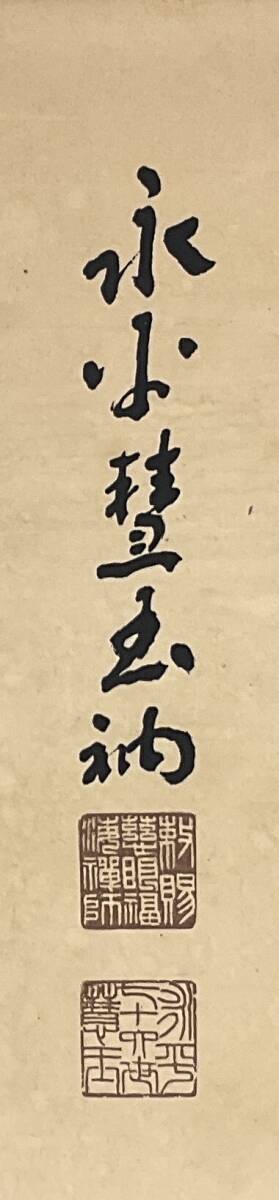 永平慧玉衲
敕賜
慈眼福
海禪師
永平
七十六世
慧玉